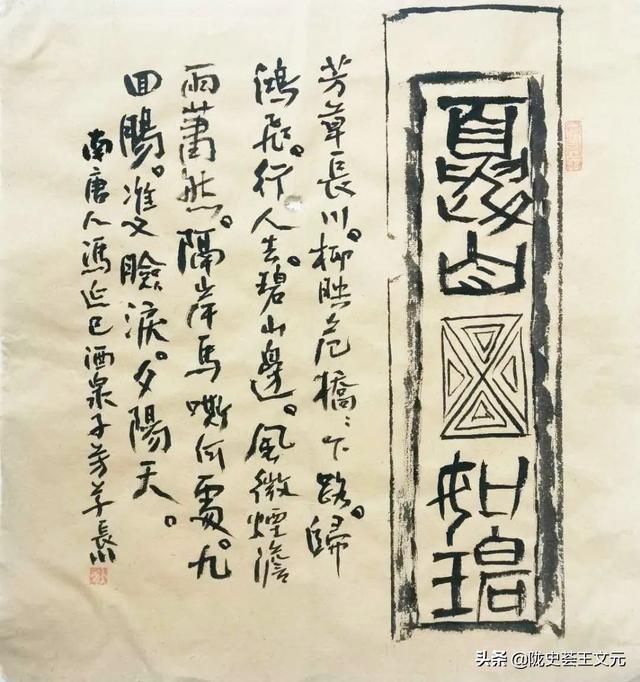 夏山如碧
芳草長川。柳映危橋々下路。歸
鴻飛。行人去。碧山邊。風微煙澹
雨蕭然。隔岸馬嘶何處。九
回腸。雙臉淚。夕陽天。
南唐人馮延巳酒泉子芳草長川
头条 @陇史荟王文元